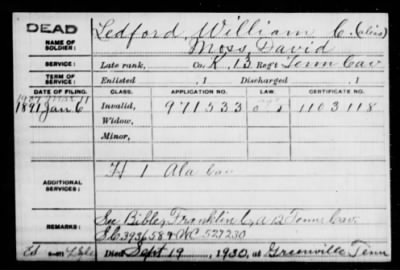 DEAD
NAME OF SOLDIER: Ledford, William C. (alias)
Moss, David
SERVICE: Late rank, Co. K, 13 Reg't Tenn Cav
TERM OF SERVICE: Enlisted , 1 Discharged , 1
DATE OF FILING. CLASS. APPLICATION NO. LAW. CERTIFICATE NO.
1891 Jan 6 Invalid, 971533 1103118
Widow,
Minor,
ADDITIONAL SERVICES: H 1 Ala Cav
REMARKS: See Bible, Franklin C, A 12 Tenn Cav.
WC 527230
Died Sept 19, 1930, at Greenville Tenn